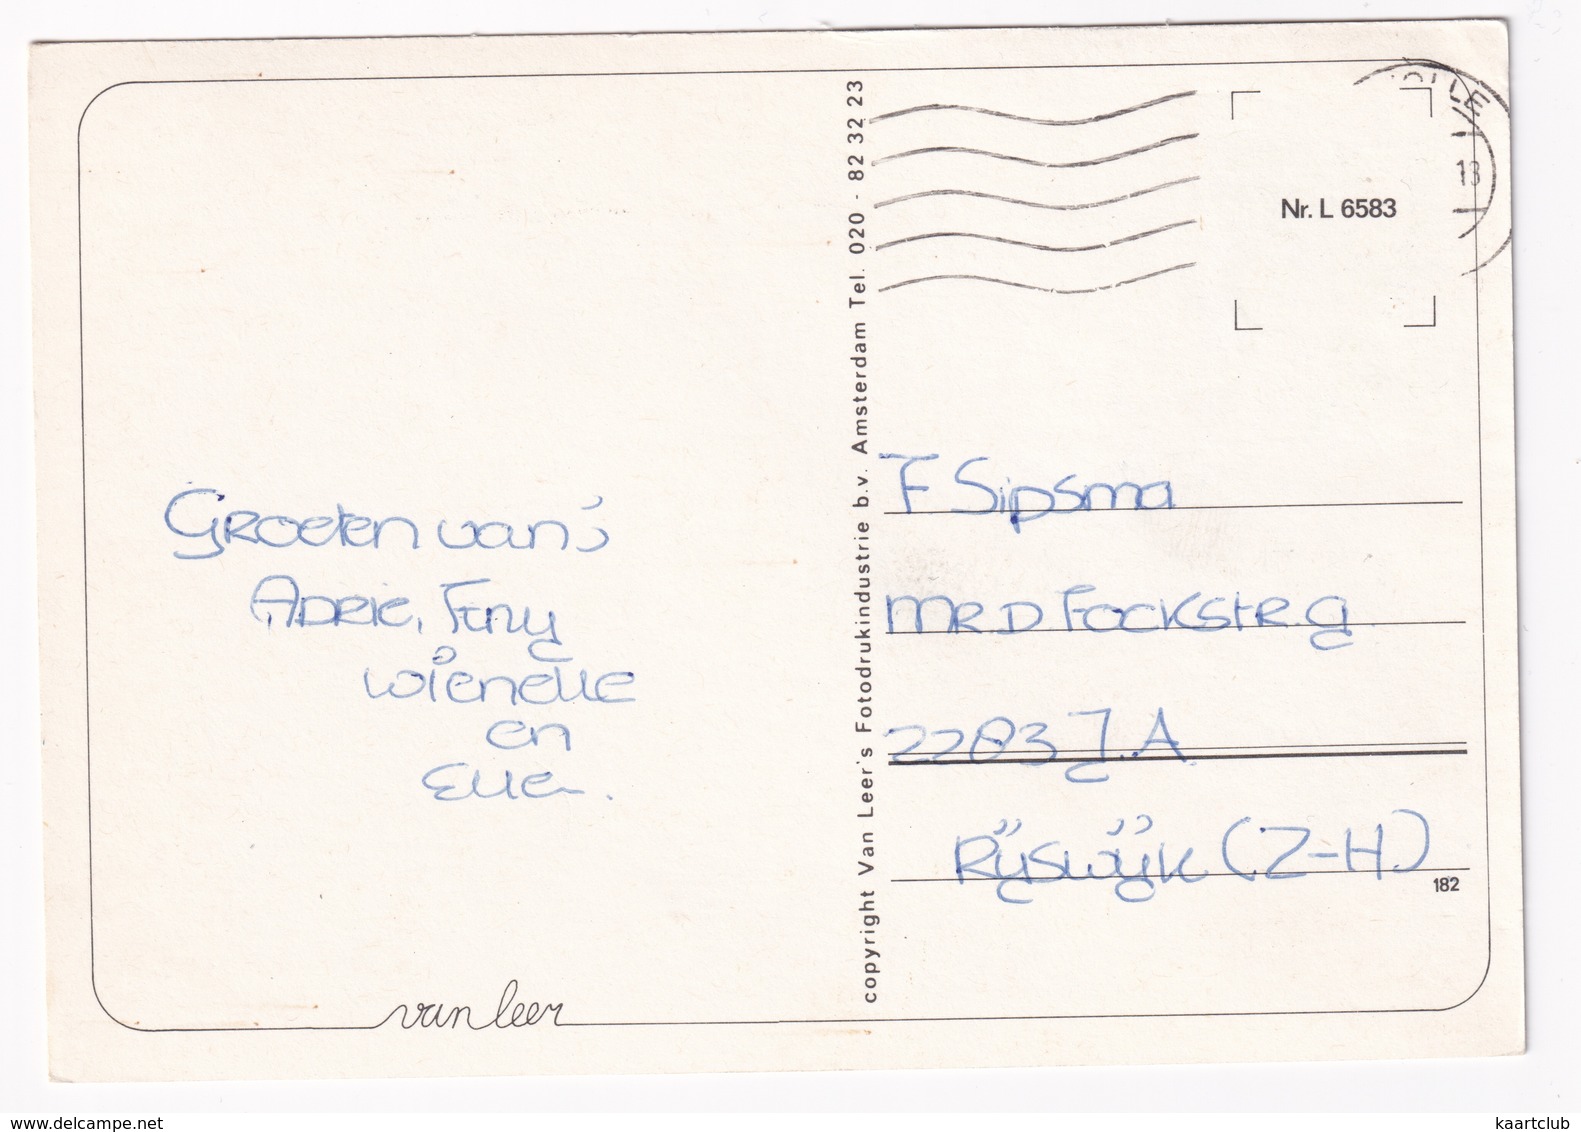 Groeten van;
Adrie, Finy
wienelle
en
Ellen.
van leer
copyright Van Leer's Fotodrukindustrie b.v. Amsterdam Tel. 020 - 82 32 23
Nr. L 6583
13
F Sipsma
Mr. D Fockstr. 9
2283 J.A
Rijswijk (Z-H)
182
www.delcampe.net
kaartclub